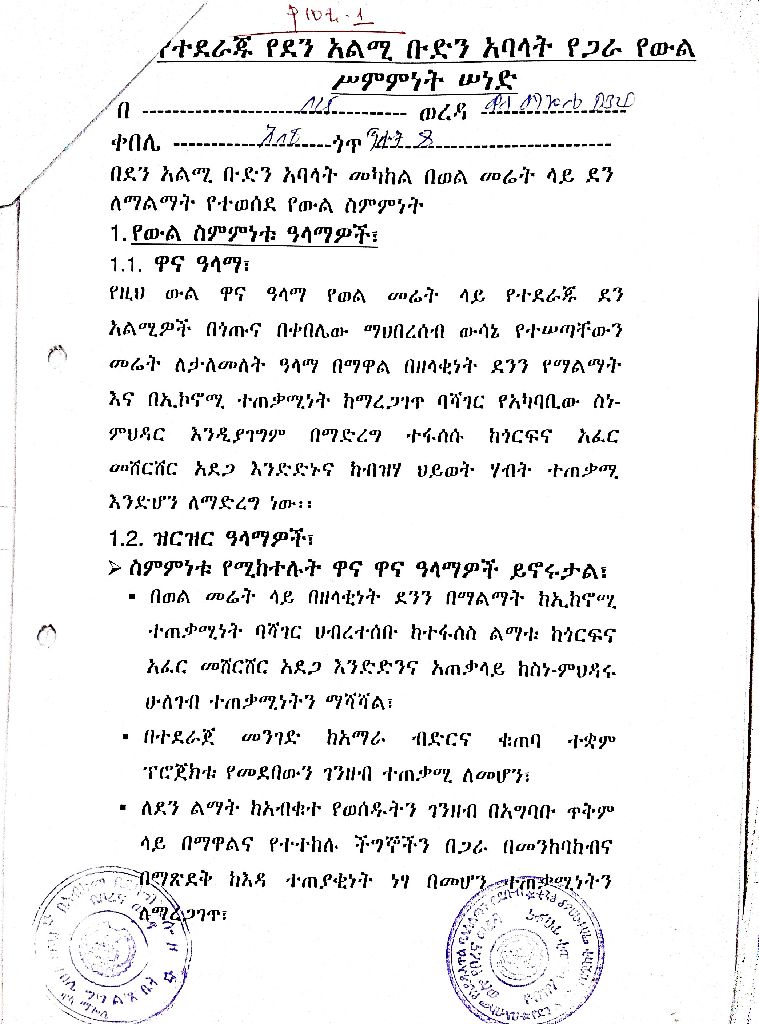 የተደራጁ የደን አልሚ ቡድን አባላት የጋራ የውል
ሥምምነት ሠነድ
በ ---------------------------------- ወረዳ -------------------
ቀበሌ --------------------ጎጥ --------------------------------
በደን አልሚ ቡድን አባላት መካከል በወል መሬት ላይ ደን
ለማልማት የተወሰደ የውል ስምምነት
1. የውል ስምምነቱ ዓላማዎች፣
1.1. ዋና ዓላማ፣
የዚህ ውል ዋና ዓላማ የወል መሬት ላይ የተደራጁ ደን
አልሚዎች በጎጡና በቀበሌው ማህበረሰብ ውሳኔ የተሠጣቸውን
መሬት ለታለመለት ዓላማ በማዋል በዘላቂነት ደንን የማልማት
እና በኢኮኖሚ ተጠቃሚነት ከማረጋገጥ ባሻገር የአካባቢው ስነ-
ምህዳር እንዲያገግም በማድረግ ተፋሰሱ ከጎርፍና አፈር
መሸርሸር አደጋ እንድድኑና ከብዝሃ ህይወት ሃብት ተጠቃሚ
እንድሆን ለማድረግ ነው፡፡
1.2. ዝርዝር ዓላማዎች፣
➢ ስምምነቱ የሚከተሉት ዋና ዋና ዓላማዎች ይኖሩታል፣
▪ በወል መሬት ላይ በዘላቂነት ደንን በማልማት ከኢኮኖሚ
ተጠቃሚነት ባሻገር ህብረተሰቡ ከተፋሰስ ልማቱ ከጎርፍና
አፈር መሸርሸር አደጋ እንድድንና አጠቃላይ ከስነ-ምህዳሩ
ሁለገብ ተጠቃሚነትን ማሻሻል፣
▪ በተደራጀ መንገድ ከአማራ ብድርና ቁጠባ ተቋም
ፕሮጀክቱ የመደበውን ገንዘብ ተጠቃሚ ለመሆን፣
▪ ለደን ልማት ከአብቁተ የወሰዱትን ገንዘብ በአግባቡ ጥቅም
ላይ በማዋልና የተተከሉ ችግኞችን በጋራ በመንከባከብና
በማጽደቅ ከእዳ ተጠያቂነት ነፃ በመሆን ተጠቃሚነትን
ለማረጋገጥ፣